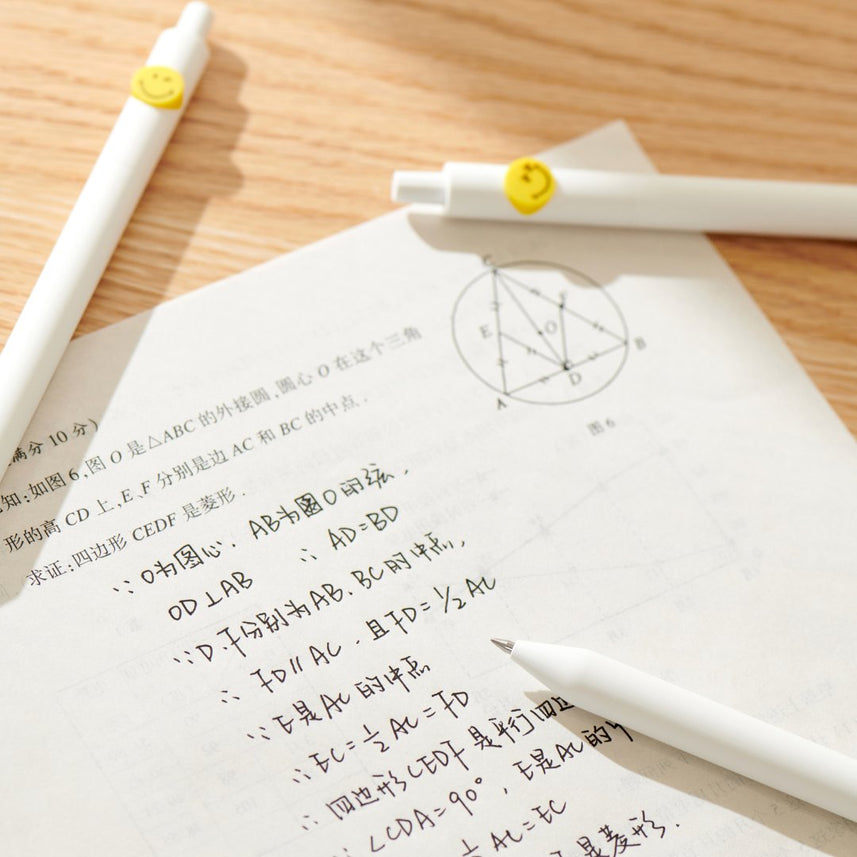 满分 10 分)
知:如图 6,圆 O 是△ABC 的外接圆,圆心 O 在这个三角
形的高 CD 上,E、F 分别是边 AC 和 BC 的中点.
求证:四边形 CEDF 是菱形.
C
F
E
O
B
D
A
图 6
∵ O为圆心. AB为圆O的弦.
OD⊥AB ∴ AD=BD
∵D.F分别为AB.BC的中点,
∴ FD∥AC . 且FD=1/2 AC
∵E是AC的中点
∴EC=1/2 AC=FD
∴ 四边形CEDF是平行四边
∵ ∠CDA=90°, E是AC的中
1/2 AC=EC
是菱形.